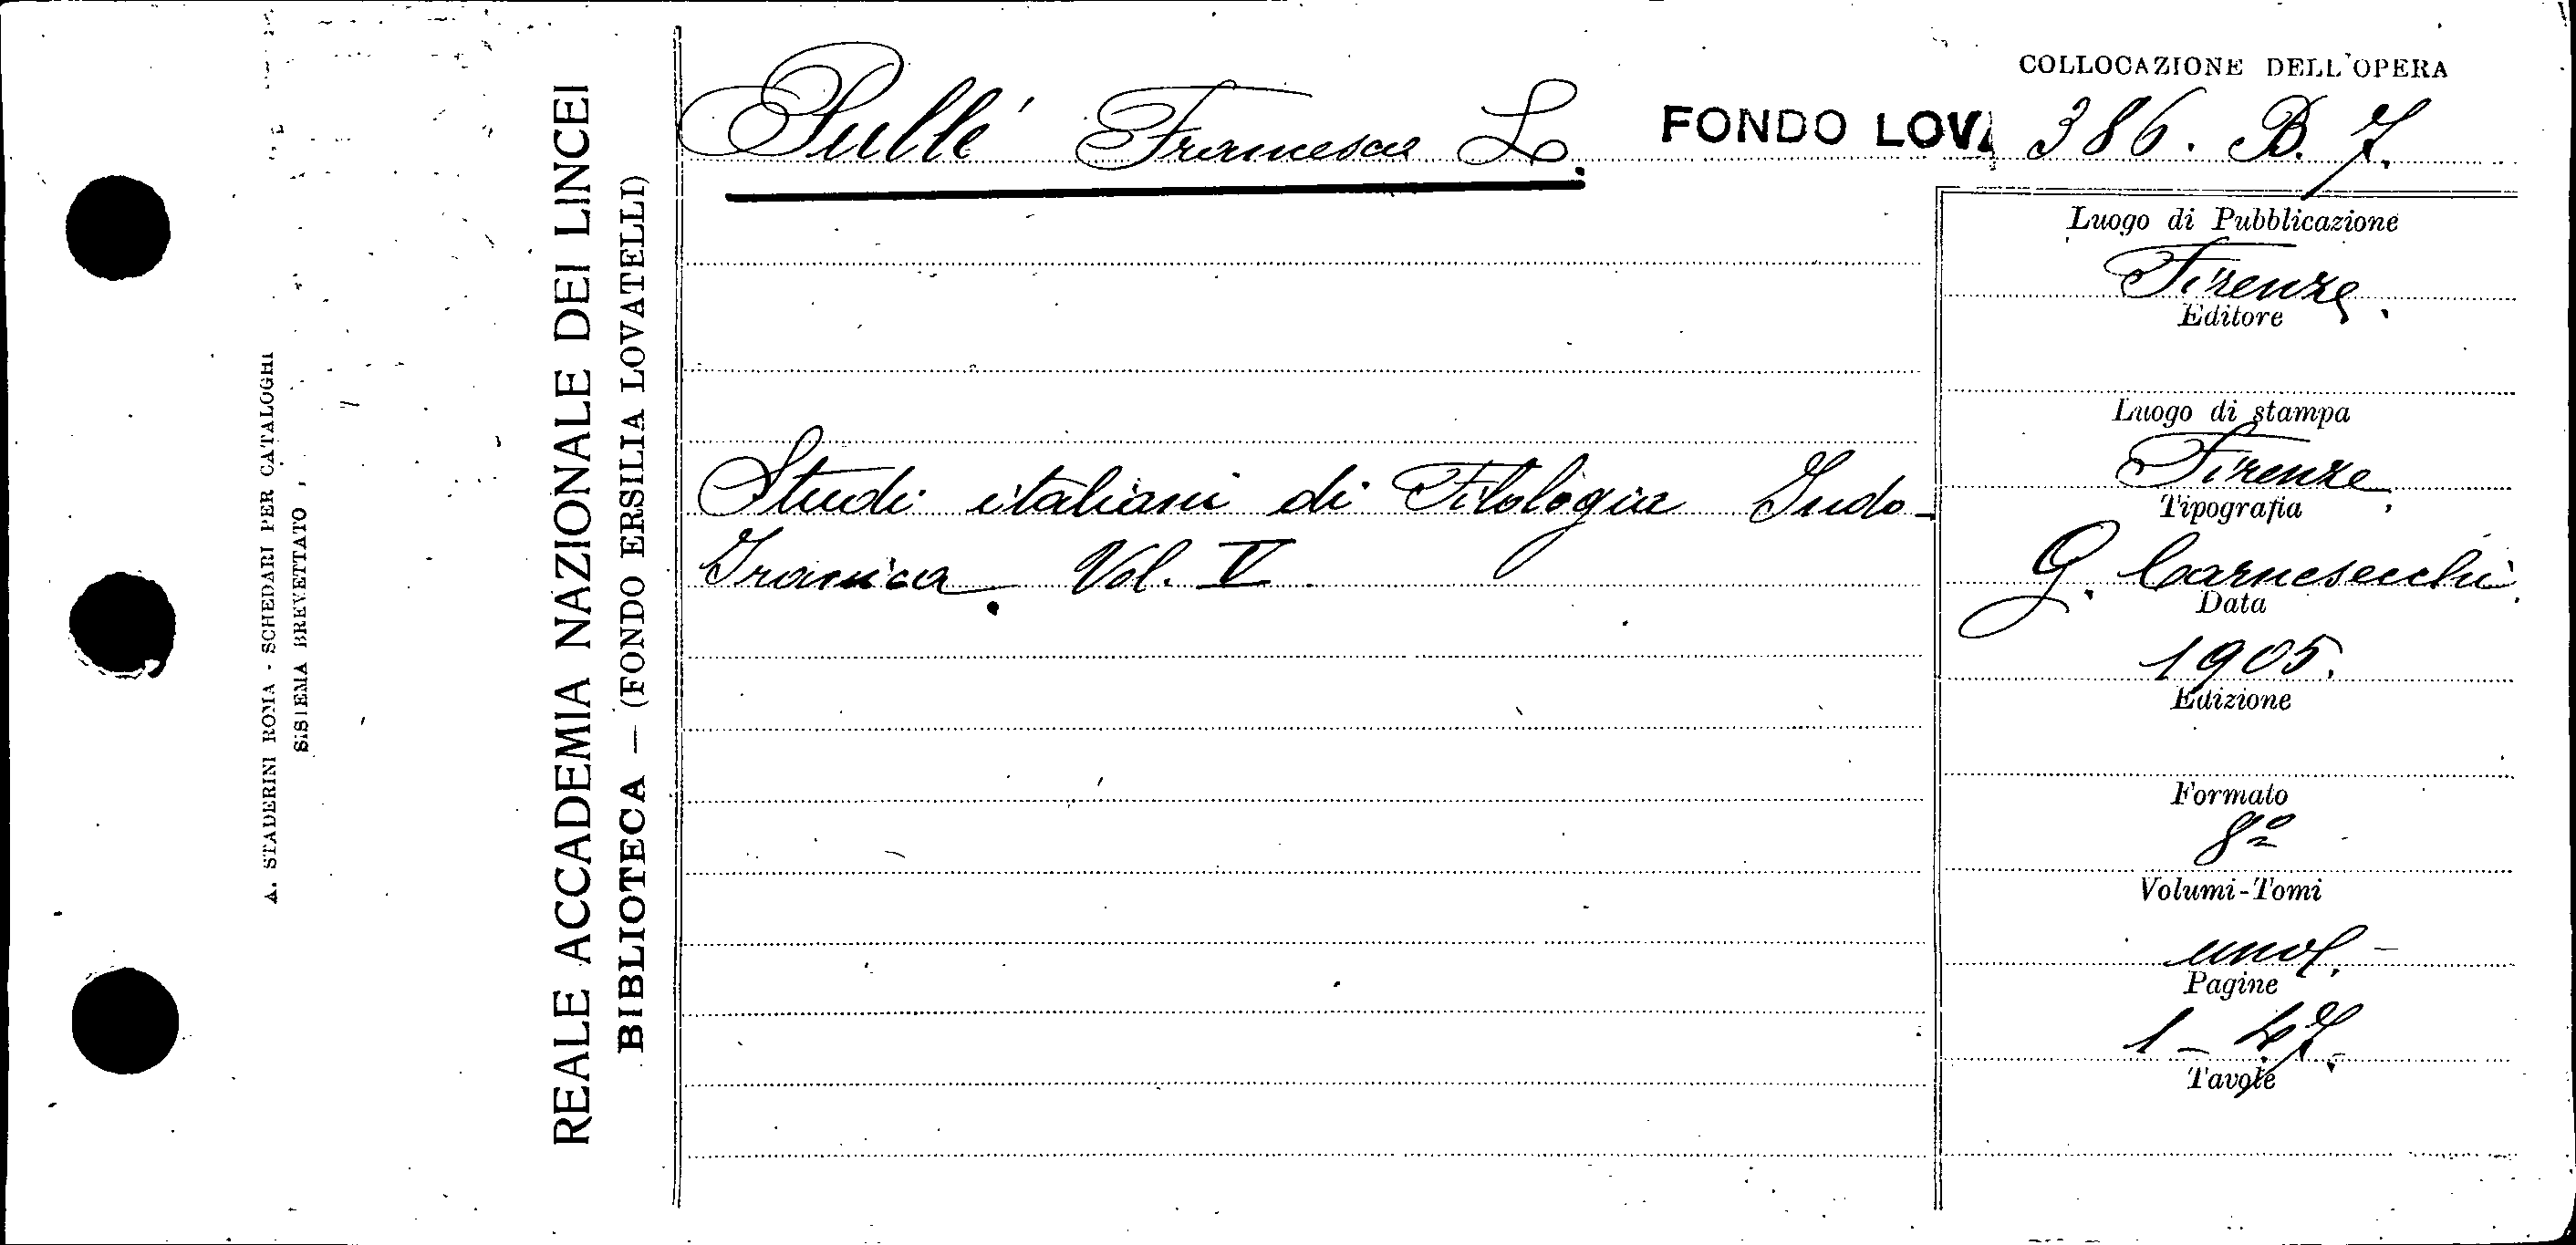 A. STADERINI ROMA - SCHEDARI PER CATALOGHI
SISTEMA BREVETTATO
REALE ACCADEMIA NAZIONALE DEI LINCEI
BIBLIOTECA — (FONDO ERSILIA LOVATELLI)
Pullé Francesco L.
FONDO LOVA
COLLOCAZIONE DELL'OPERA
386. B. 7.
Studi italiani di Filologia Indo-
Iranica. Vol. V.
Luogo di Pubblicazione
Firenze.
Editore
Luogo di stampa
Firenze.
Tipografia
G. Carnesecchi.
Data
1905.
Edizione
Formato
8º
Volumi-Tomi
Pagine
1 - 47.
Tavole